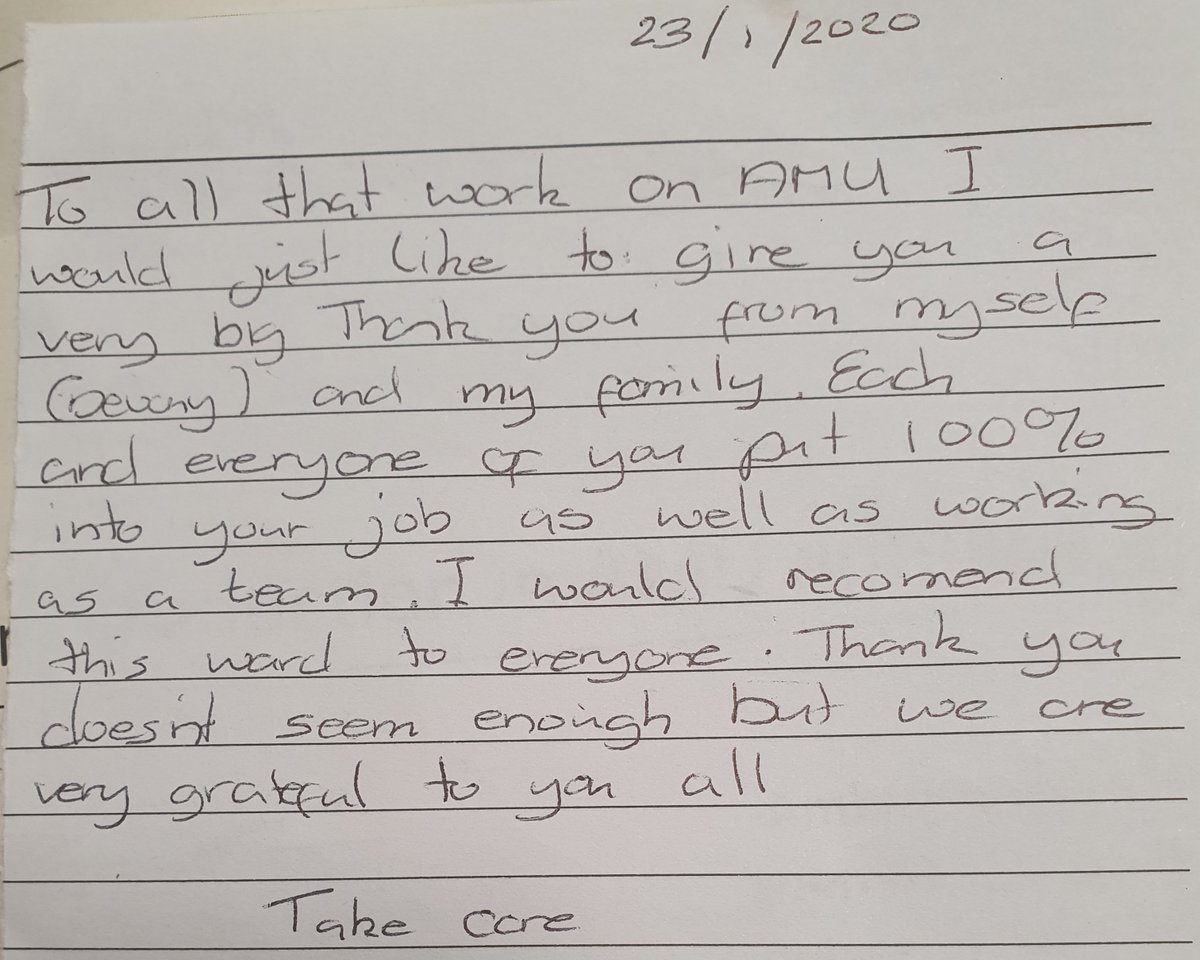 23/1/2020
To all that work on AMU I
would just like to give you a
very big Thank you from myself
and my family. Each
and everyone of you put 100%
into your job as well as working
as a team. I would recomend
this ward to everyone. Thank you
doesn't seem enough but we are
very grateful to you all
Take care